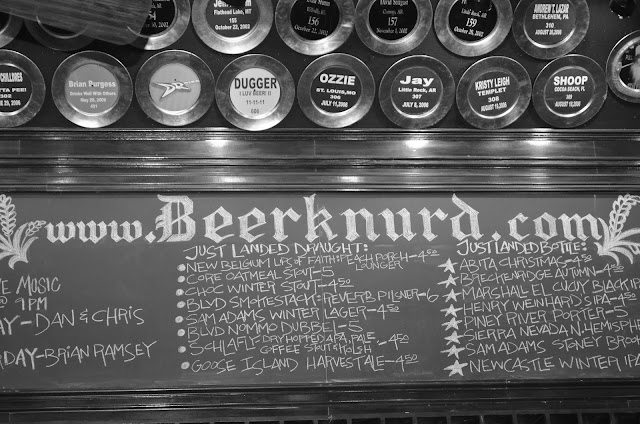 Flathead Lake, MT
155
October 22, 2002
156
October 22, 2002
157
159
ANDREW T. LAZAR
BETHLEHEM, PA
310
Brian Purgess
Drinks Well With Others
May 28, 2008
DUGGER
I LUV BEER! II
11-11-11
OZZIE
ST. LOUIS, MO
306
JULY 11, 2006
Jay
Little Rock, AR
307
July 8, 2006
KRISTY LEIGH
TEMPLET
308
AUGUST 18, 2006
SHOOP
COCOA BEACH, FL
309
AUGUST 19, 2006
www.Beerknurd.com
JUST LANDED DRAUGHT:
NEW BELGIUM LIPS OF FAITH: PEACH PORCH LOUNGER-4.50
COPE OATMEAL STOUT-5
CHOC WINTER STOUT-4.50
BLVD SMOKESTACK: REVERB PILSNER-6
SAM ADAMS WINTER LAGER-4.50
BLVD NOMMO DUBBEL-5
SCHLAFLY-DRY HOPPED APA, PALE, COFFEE STOUT, KOLSH-4.50
GOOSE ISLAND HARVEST ALE-4.50
JUST LANDED BOTTLE:
ABITA CHRISTMAS-4.50
BRECKENRIDGE AUTUMN-4
MARSHALL EL CUCUY BLACK
HENRY WEINHARD'S IPA-4
PINEY RIVER PORTER-5
SIERRA NEVADA N. HEMISPH
SAM ADAMS STONEY BROO
NEWCASTLE WINTER IPA
E MUSIC
@ 9PM
AY-DAN & CHRIS
DAY-BRIAN RAMSEY